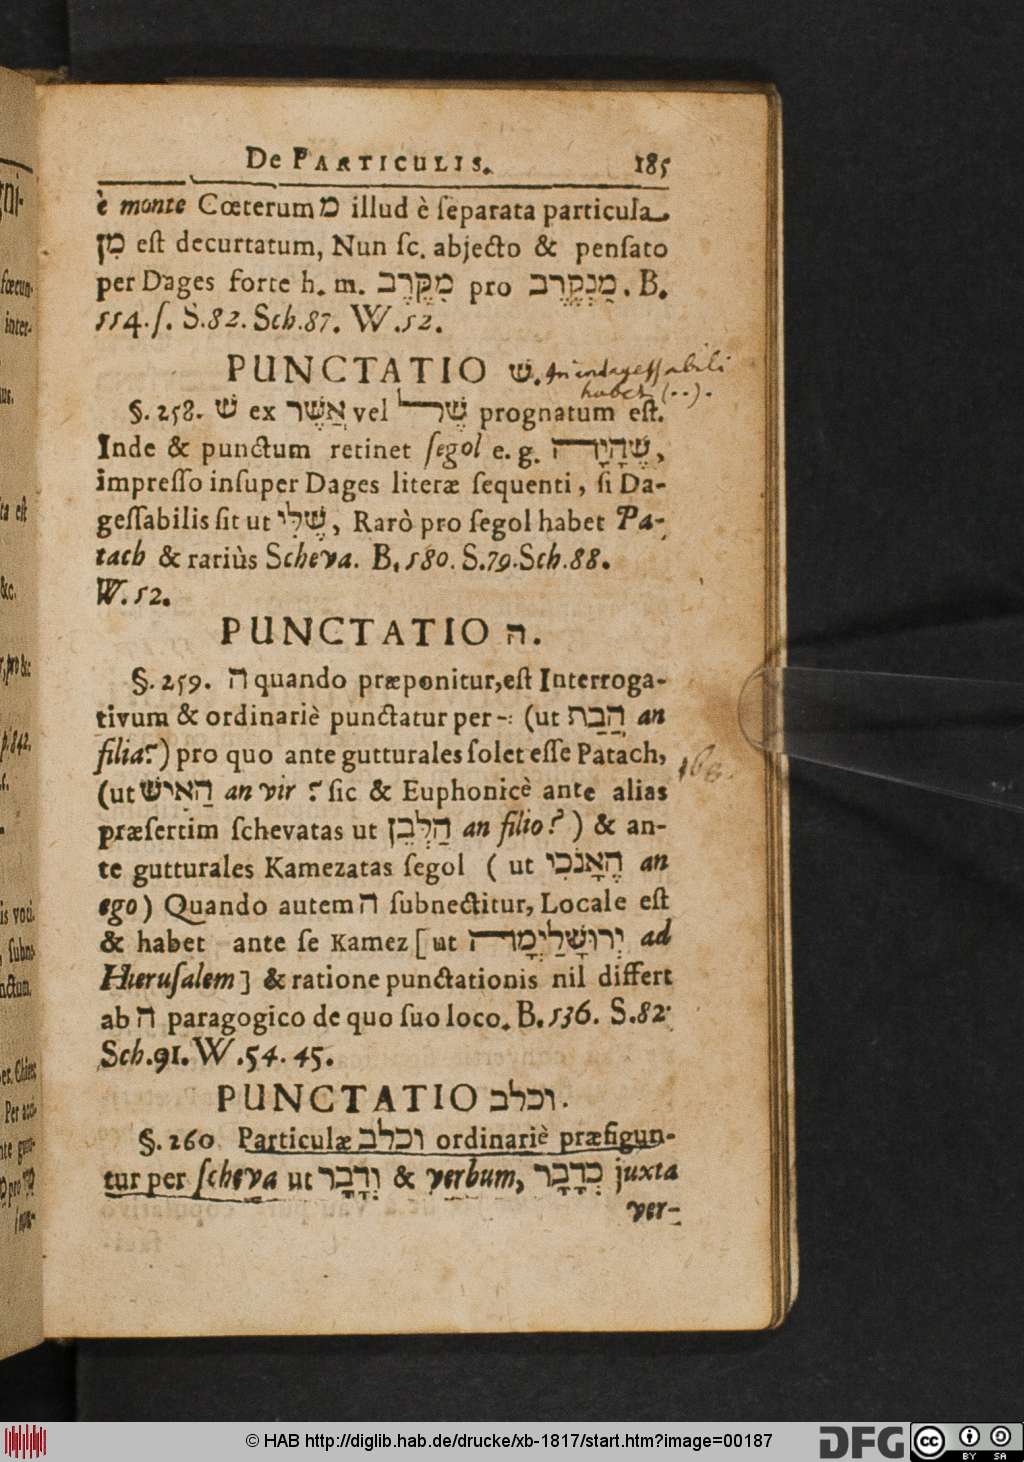 De PARTICULIS. 185
è monte Cœterum מ illud è ſeparata particula
מִן eſt decurtatum, Nun ſc. abjecto & penſato
per Dages forte h. m. מִקֶּרֶב pro מִנְקֶרֶב. B.
554. ſ. S. 82. Sch. 87. W. 52.
PUNCTATIO שׁ.
habet (..).
§. 258. שׁ ex אֲשֶׁר vel שֶׁל prognatum eſt.
Inde & punctum retinet ſegol e. g. שֶׁהָיָה,
impreſſo inſuper Dages literæ ſequenti, ſi Da-
geſſabilis ſit ut שֶׁלִּי, Rarò pro ſegol habet Pa-
tach & rariùs Scheva. B. 580. S. 79. Sch. 88.
W. 52.
PUNCTATIO ה.
§. 259. ה quando præponitur, eſt Interroga-
tivum & ordinariè punctatur per -: (ut הֲבַת an
filia?) pro quo ante gutturales ſolet eſſe Patach,
(ut הַאִישׁ an vir? ſic & Euphonicè ante alias
præſertim ſchevatas ut הַלְבֵן an filio?) & an-
te gutturales Kamezatas ſegol (ut הֶאָנֹכִי an
ego) Quando autem ה ſubnectitur, Locale eſt
& habet ante ſe Kamez [ut יְרוּשָׁלַיְמָה ad
Hieruſalem] & ratione punctationis nil differt
ab ה paragogico de quo ſuo loco. B. 536. S. 82.
Sch. 91. W. 54. 45.
PUNCTATIO וכלב.
§. 260 Particulæ וכלב ordinariè præfigun-
tur per ſcheva ut וְדָבָר & verbum, כְדָבָר juxta
ver-
© HAB http://diglib.hab.de/drucke/xb-1817/start.htm?image=00187
DFG
cc
BY SA